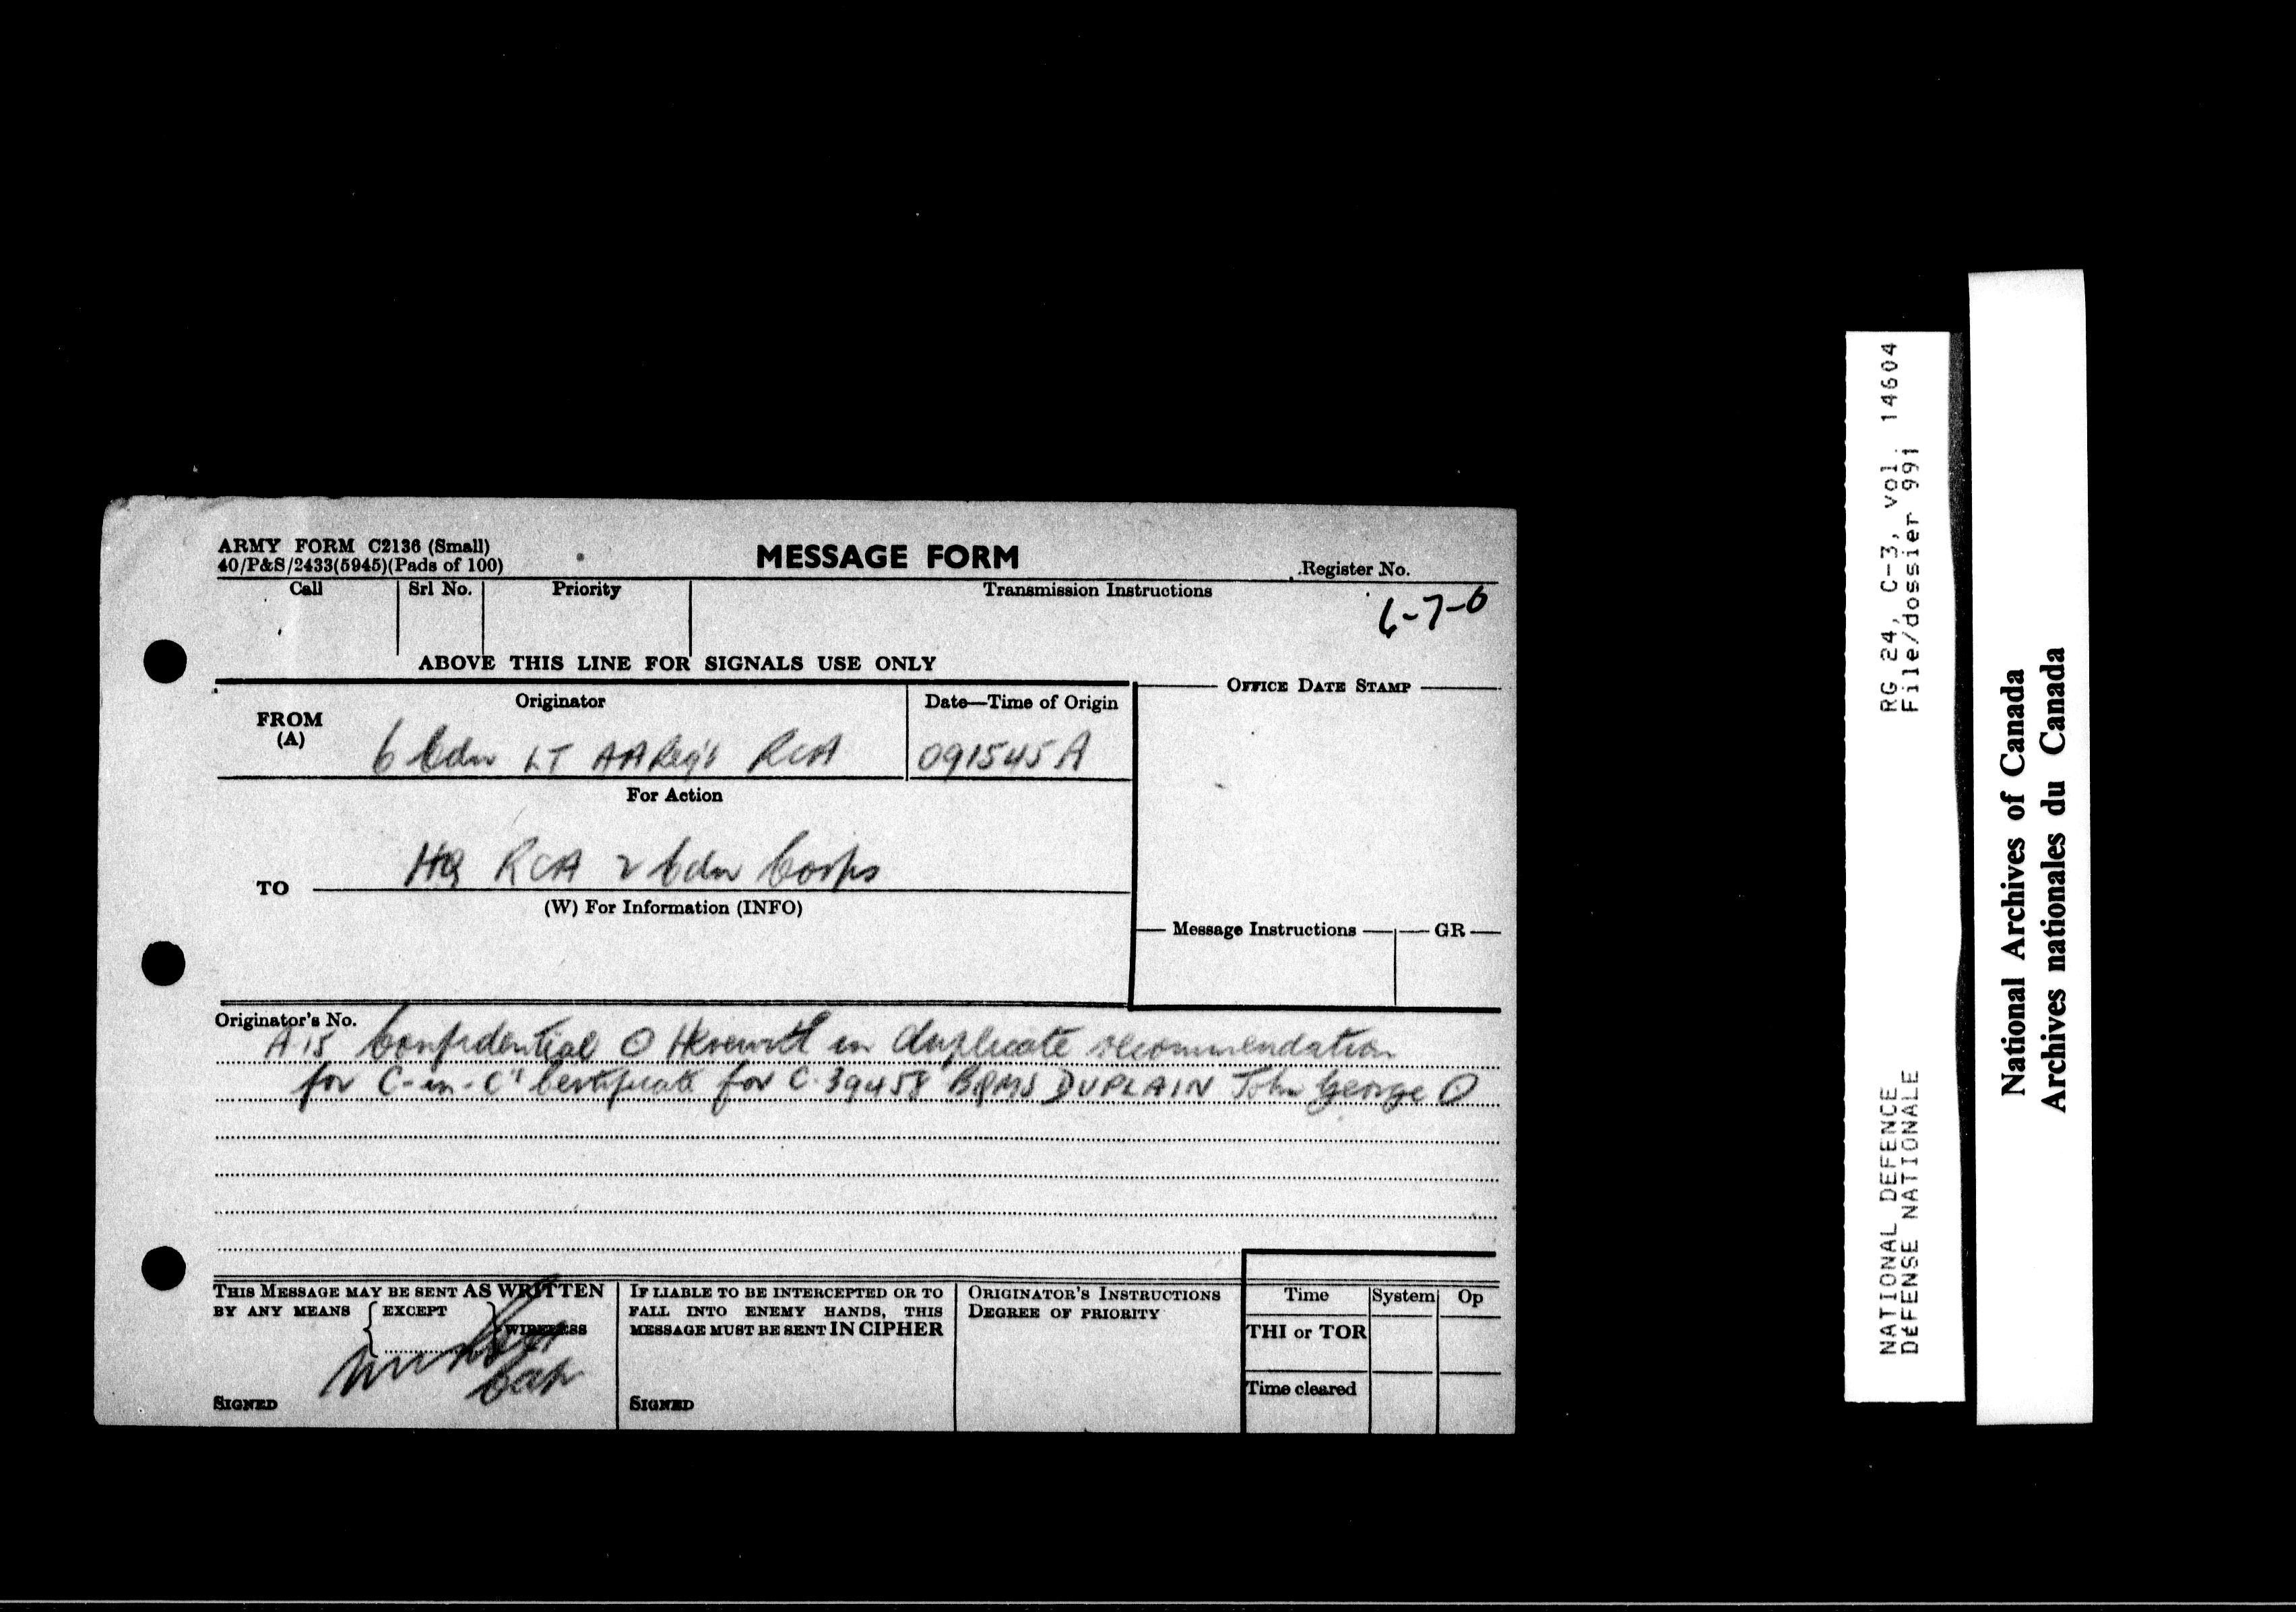 ARMY FORM C2136 (Small)
40/P&S/2433(5945)(Pads of 100)
MESSAGE FORM
Register No.
Call
Srl No.
Priority
Transmission Instructions
6-7-6
ABOVE THIS LINE FOR SIGNALS USE ONLY
FROM
(A)
Originator
6 Cdn LT AA Regt RCA
Date—Time of Origin
091545A
OFFICE DATE STAMP
For Action
TO
HQ RCA 2 Cdn Corps
(W) For Information (INFO)
Message Instructions
GR
Originator's No.
A15 Confidential O Herewith in duplicate recommendation
for C-in-C's Certificate for C.39458 BQMS DUPLAIN John George O
THIS MESSAGE MAY BE SENT AS WRITTEN
BY ANY MEANS { EXCEPT } WIRELESS
SIGNED
Capt
IF LIABLE TO BE INTERCEPTED OR TO
FALL INTO ENEMY HANDS, THIS
MESSAGE MUST BE SENT IN CIPHER
SIGNED
ORIGINATOR'S INSTRUCTIONS
DEGREE OF PRIORITY
Time
System
Op
THI or TOR
Time cleared
NATIONAL DEFENCE RG 24, C-3, vol. 14604
DéFENSE NATIONALE File/dossier 991
National Archives of Canada
Archives nationales du Canada